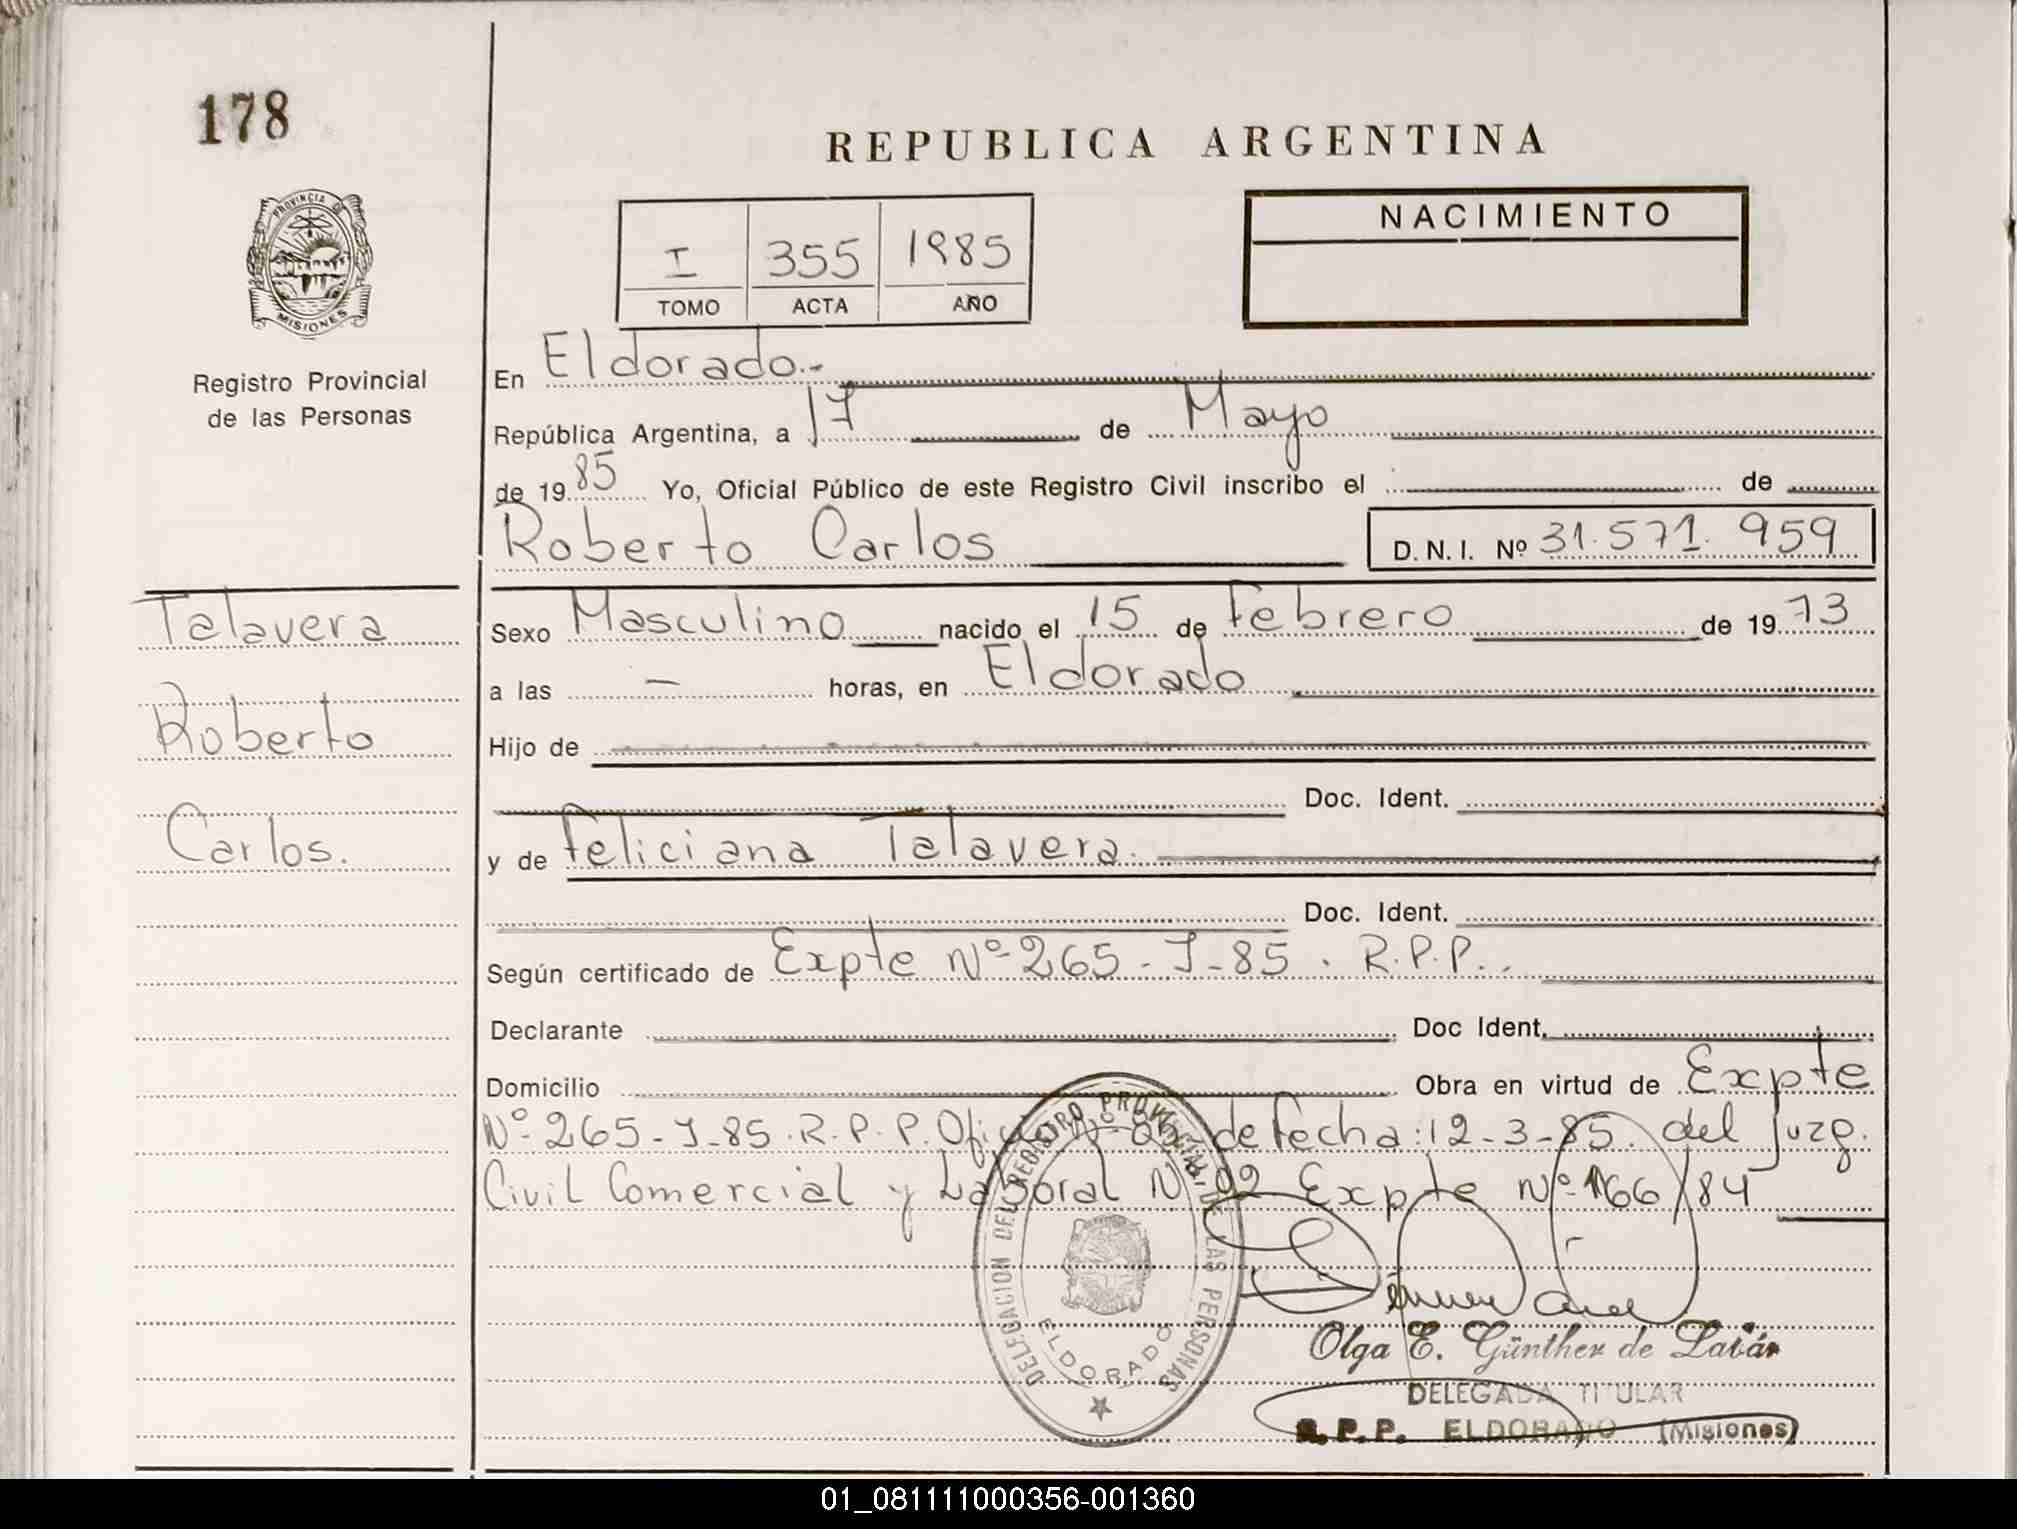 178
REPUBLICA ARGENTINA
NACIMIENTO
I 355 1985
TOMO ACTA AÑO
PROVINCIA DE
MISIONES
Registro Provincial
de las Personas
En Eldorado.-
República Argentina, a 17 de Mayo
de 1985 Yo, Oficial Público de este Registro Civil inscribo el de
Roberto Carlos D.N.I. Nº 31.571.959
Talavera
Roberto
Carlos.
Sexo Masculino nacido el 15 de Febrero de 1973
a las – horas, en Eldorado
Hijo de
Doc. Ident.
y de Feliciana Talavera.
Doc. Ident.
Según certificado de Expte Nº 265-J-85. R.P.P..
Declarante Doc Ident.
Domicilio Obra en virtud de Expte
Nº 265-J-85.R.P.P. de fecha: 12-3-85. del Juzg.
Civil Comercial y Laboral Nº 02 Expte Nº 166/84
DELEGACION DEL REGISTRO PROVINCIAL DE LAS PERSONAS
ELDORADO
Olga E. Günther de
DELEGADA TITULAR
R.P.P. ELDORADO (Misiones)
01_081111000356-001360